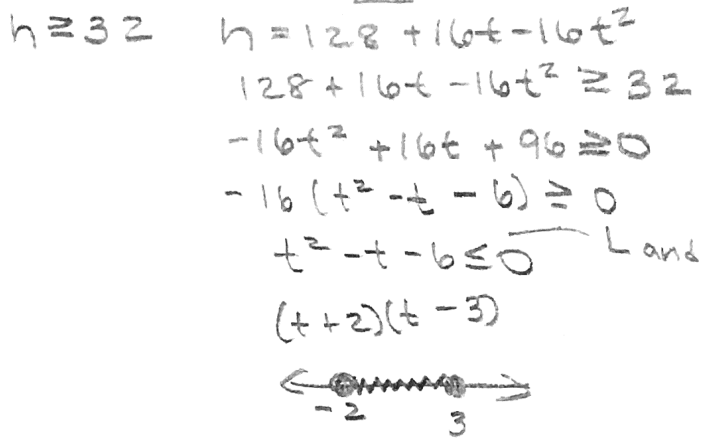 h ≥ 32 h = 128 + 16t - 16t²
128 + 16t - 16t² ≥ 32
-16t² + 16t + 96 ≥ 0
-16(t² - t - 6) ≥ 0
t² - t - 6 ≤ 0 L and
(t + 2)(t - 3)
-2 3